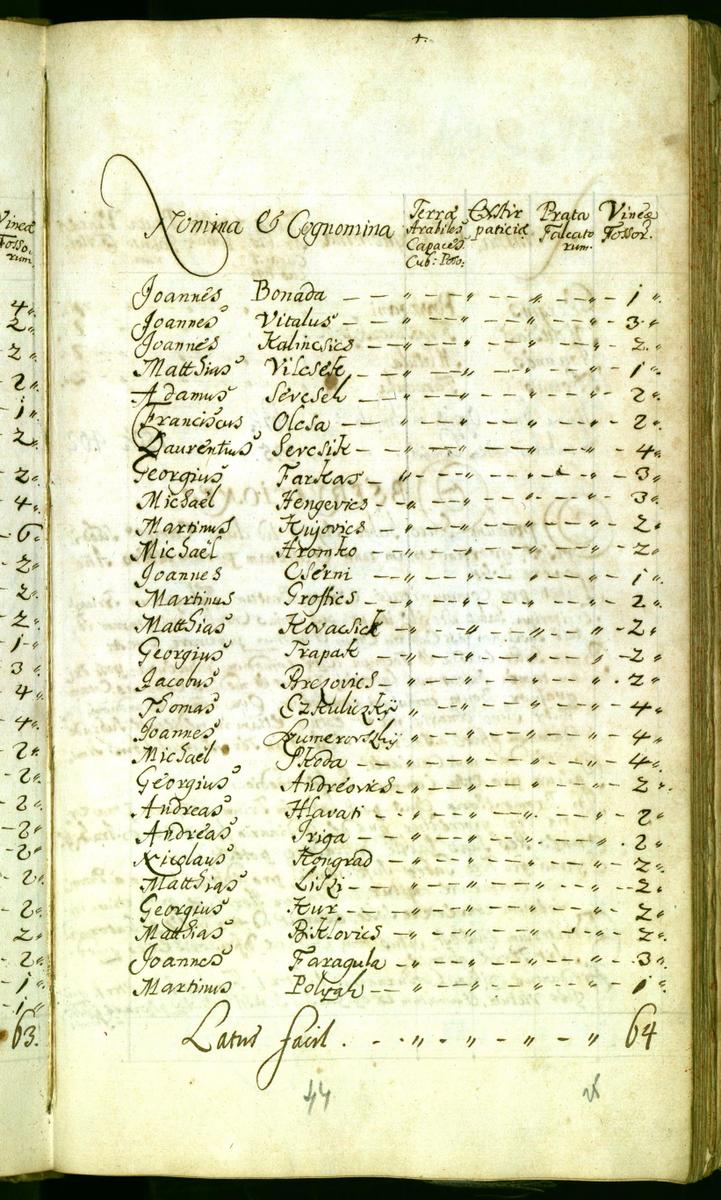 4.
Nomina & Cognomina
Terræ Arabiles Capaces Cub: Poso:
Extirpaticiæ
Prata Falcatorum
Vineæ Fossor.
Joannes Bonada — — „ — — „ — — „ — — „ — 1 „
Joannes Vitalus — — „ — — „ — — „ — — „ — 3 „
Joannes Kalincsics — — „ — — „ — — „ — — „ — 2 „
Matthias Vilcsek — — „ — — „ — — „ — — „ — 1 „
Adamus Sevcseh — — „ — — „ — — „ — — „ — 2 „
Franciscus Olcsa — — „ — — „ — — „ — — „ — 2 „
Laurentius Sevcsik — — „ — — „ — — „ — — „ — 4 „
Georgius Farkas — — „ — — „ — — „ — — „ — 3 „
Michaël Hengevics — — „ — — „ — — „ — — „ — 3 „
Martinus Kujovics — — „ — — „ — — „ — — „ — 2 „
Michaël Hromko — — „ — — „ — — „ — — „ — 2 „
Joannes Cserni — — „ — — „ — — „ — — „ — 1 „
Martinus — — „ — — „ — — „ — — „ — 2 „
Matthias Kovacsick — „ — — „ — — „ — — „ — 2 „
Georgius Trapak — „ — — „ — — „ — — „ — 2 „
Jacobus Brezovics — „ — — „ — — „ — — „ — 2 „
Thomas Czkuliczkÿ „ — — „ — — „ — — „ — 4 „
Joannes „ — — „ — — „ — — „ — 4 „
Michaël Skoda — — „ — — „ — — „ — — „ — 4 „
Georgius Andreovics — „ — — „ — — „ — — „ — 2 „
Andreas Hlavati — — „ — — „ — — „ — — „ — 2 „
Andreas Iriga — — „ — — „ — — „ — — „ — 2 „
Nicolaus Kongrad — „ — — „ — — „ — — „ — 2 „
Matthias Liszi — — „ — — „ — — „ — — „ — 2 „
Georgius Kur — — „ — — „ — — „ — — „ — 2 „
Matthias Biklovics — „ — — „ — — „ — — „ — 2 „
Joannes Faragula — „ — — „ — — „ — — „ — 3 „
Martinus — — „ — — „ — — „ — — „ — 1 „
Latus facit . — . — „ — „ — „ — „ 64
44
Vineæ Fossorum.
4 „
2 „
2 „
2 „
1 „
2 „
2 „
4 „
6 „
2 „
2 „
2 „
1 „
3 „
4 „
4 „
2 „
2 „
2 „
2 „
2 „
2 „
2 „
2 „
1 „
1 „
63.